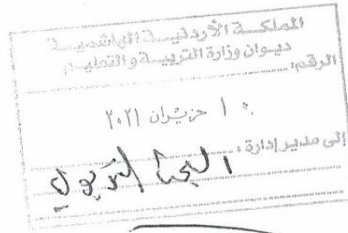 المملكة الأردنية الهاشمية
ديوان وزارة التربية والتعليم
الرقم:
١ حزيران ٢٠٢١
إلى مدير إدارة:
البحث التربوي